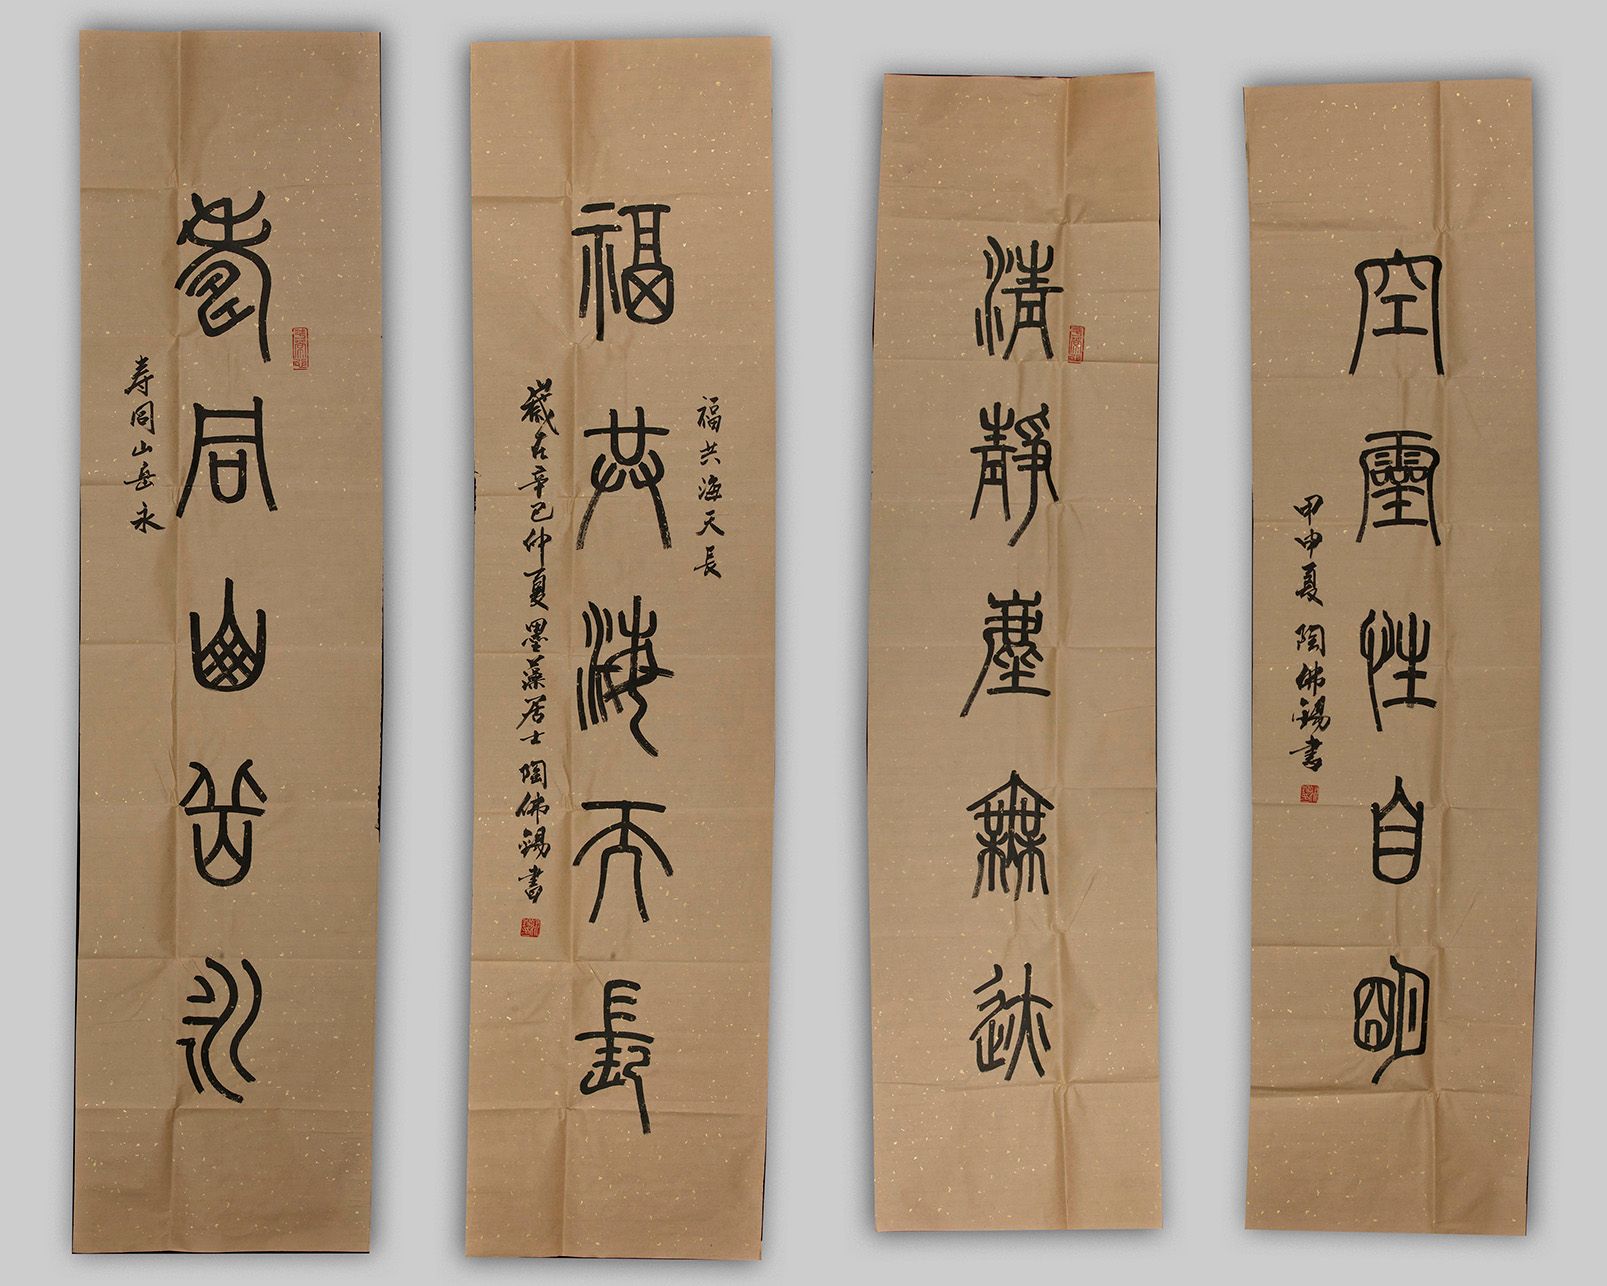 壽同山岳永
寿同山岳永
福共海天長
福共海天長
歲在辛巳仲夏墨藻居士陶佛錫書
清靜塵無迹
空靈性自明
甲申夏陶佛錫書